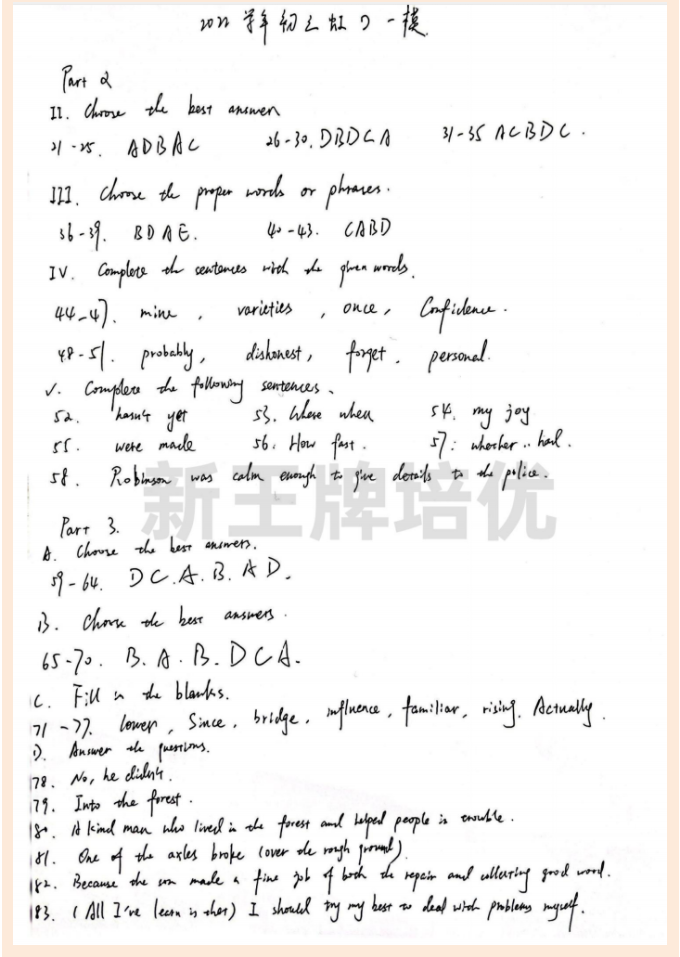 2022 学年 初三 虹口 一模
Part 2
II. Choose the best answer
21-25. ADBAC 26-30. DBDCA 31-35 ACBDC.
III. Choose the proper words or phrases.
36-39. BDAE. 40-43. CABD
IV. Complete the sentences with the given words.
44-47. mine, varieties, once, Confidence.
48-51. probably, dishonest, forget. personal.
V. Complete the following sentences.
52. hasn't yet 53. Where when 54. my joy
55. were made 56. How fast. 57: whether .. had.
58. Robinson was calm enough to give details to the police.
新王牌培优
Part 3.
A. Choose the best answers.
59-64. D C. A. B. A D.
B. Choose the best answers.
65-70. B. A. B. D C A.
C. Fill in the blanks.
71-77. lower, Since, bridge, influence, familiar, rising. Actually.
D. Answer the questions.
78. No, he didn't.
79. Into the forest.
80. A kind man who lived in the forest and helped people in trouble.
81. One of the axles broke (over the rough ground).
82. Because the son made a fine job of both the repair and collecting good word.
83. (All I've learn is that) I should try my best to deal with problems myself.